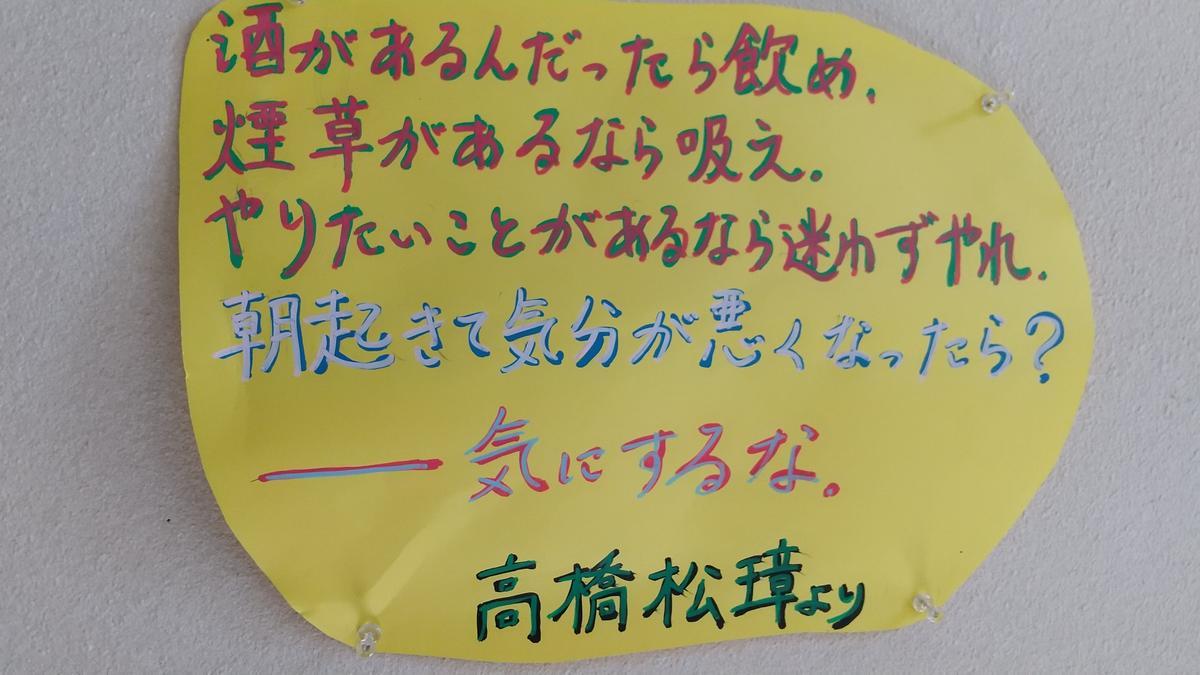 酒があるんだったら飲め.
煙草があるなら吸え.
やりたいことがあるなら迷わずやれ.
朝起きて気分が悪くなったら?
――気にするな.
高橋松璋より